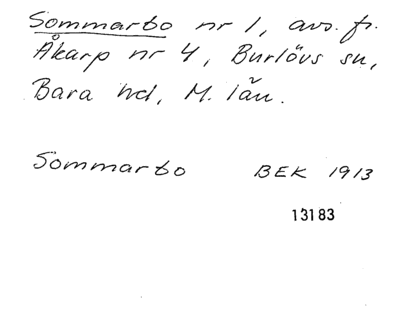 Sommarbo nr 1, avs. fr.
Åkarp nr 4, Burlövs sn,
Bara hd, M. län.
Sommarbo BEK 1913
13183